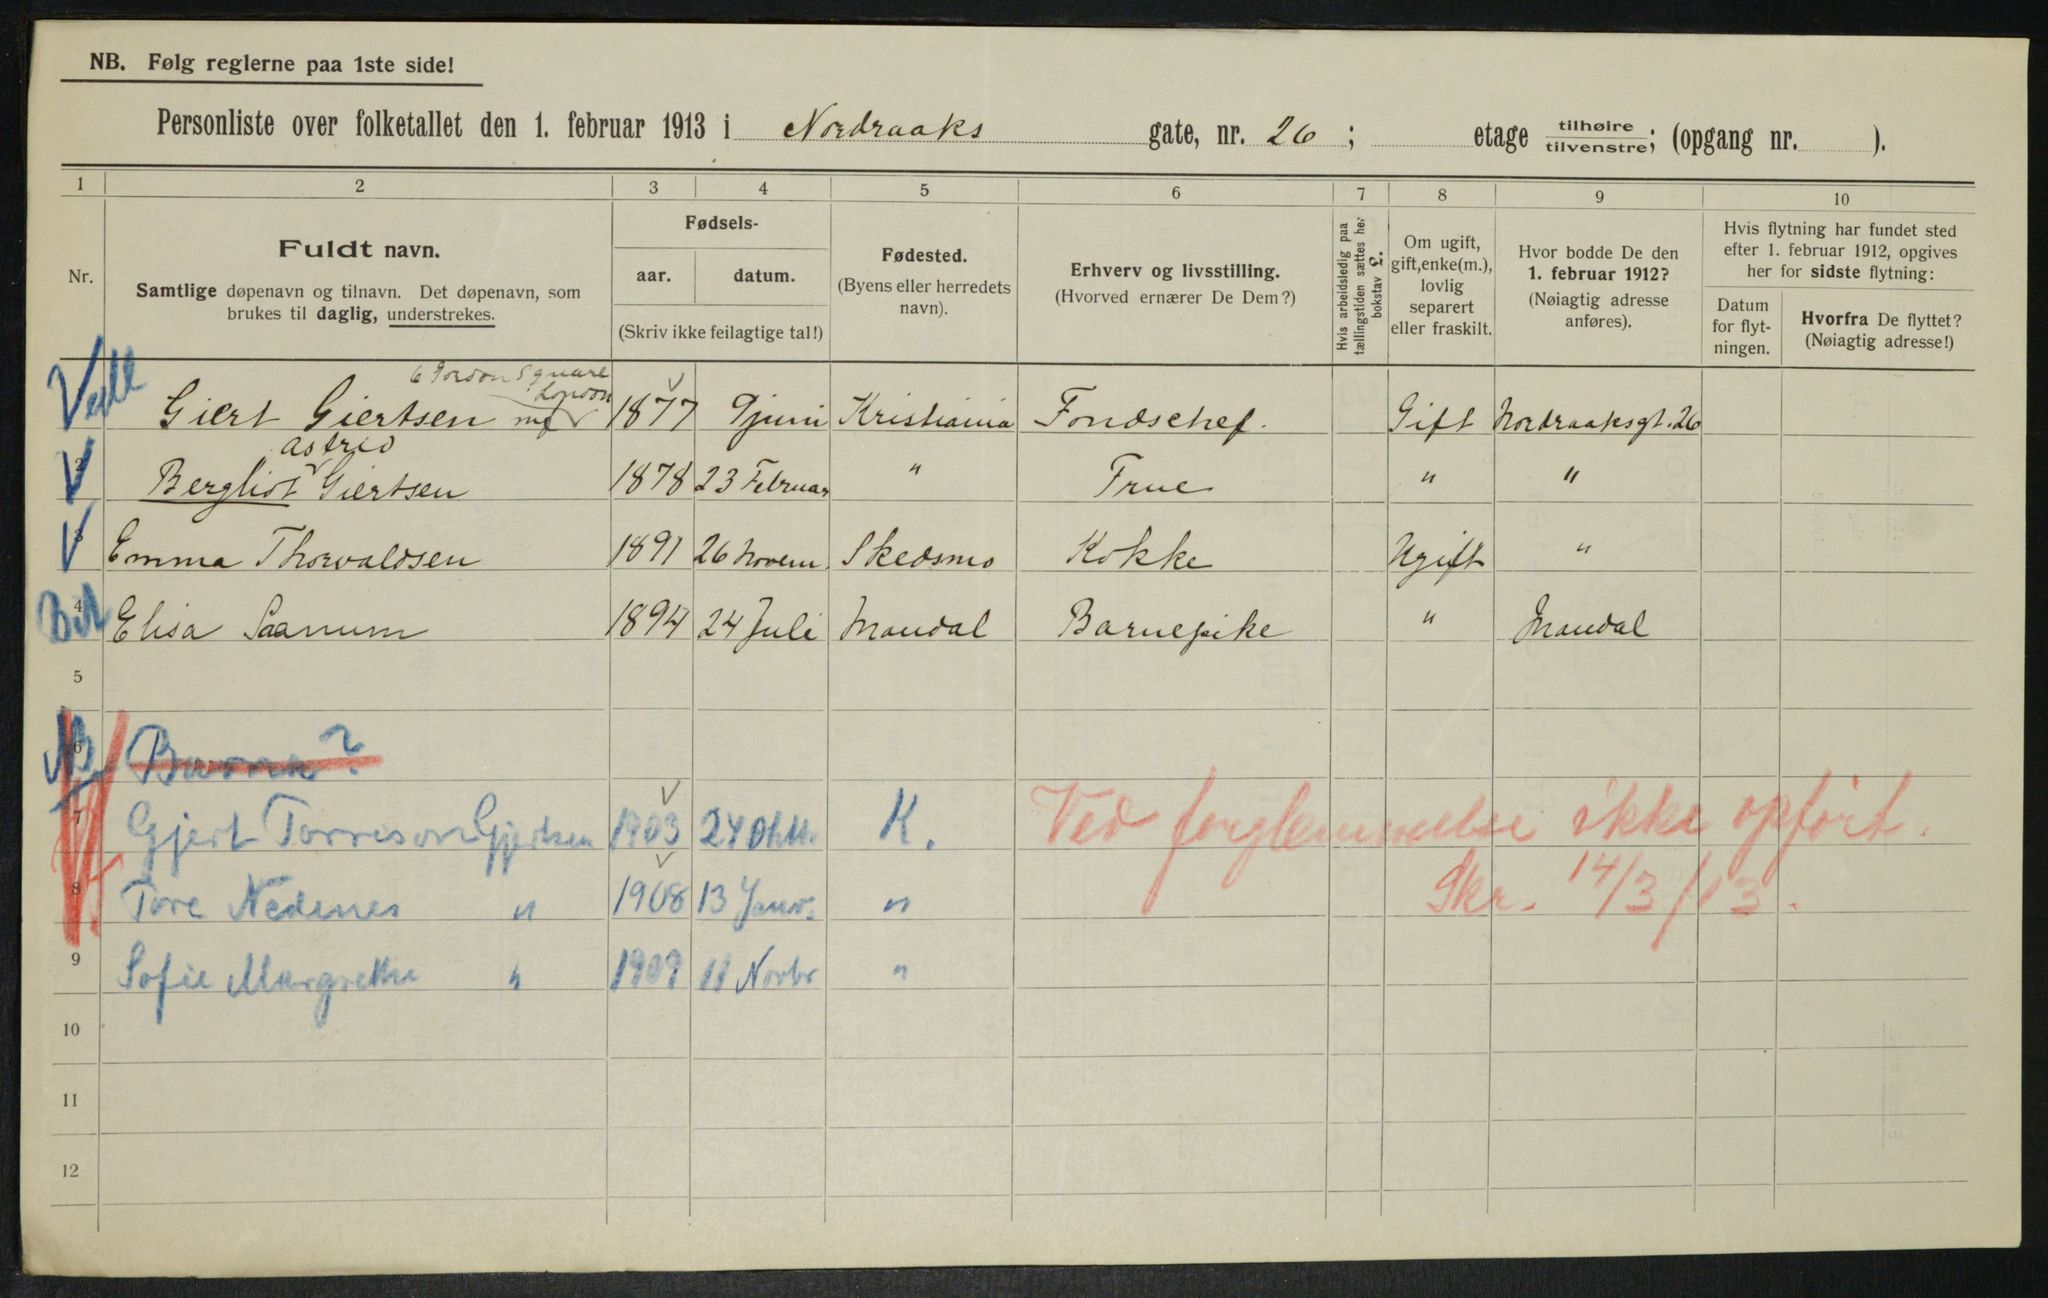 NB. Følg reglerne paa 1ste side!
Personliste over folketallet den 1. februar 1913 i Nordraaks gate, nr. 26 ; etage tilhøire tilvenstre; (opgang nr. ).
1 2 3 4 5 6 7 8 9 10
Nr.
Fuldt navn.
Samtlige døpenavn og tilnavn. Det døpenavn, som
brukes til daglig, understrekes.
Fødsels-
aar. datum.
(Skriv ikke feilagtige tal!)
Fødested.
(Byens eller herredets
navn).
Erhverv og livsstilling.
(Hvorved ernærer De Dem?)
Hvis arbeidsledig paa
tællingstiden sættes her
bokstav
Om ugift,
gift, enke(m.),
lovlig
separert
eller fraskilt.
Hvor bodde De den
1. februar 1912?
(Nøiagtig adresse
anføres).
Hvis flytning har fundet sted
efter 1. februar 1912, opgives
her for sidste flytning:
Datum
for flyt-
ningen.
Hvorfra De flyttet?
(Nøiagtig adresse!)
6 Gordon Square
London
Giert Giertsen 1877 9 juni Kristiania Fondschef. Gift Nordraaksgt. 26
Astrid
2 Bergliot Giertsen 1878 23 Februar " Frue " "
3 Emma Thorvaldsen 1891 26 Novem. Skedsmo Kokke Ugift "
4 Elisa Saanum 1894 24 Juli Mandal Barnepike " Mandal
5
6 Barna?
7 Gjert Torrison Gjertsen 1903 24 Oktb. K. Ved forglemmelse ikke opført.
8 Tore Nedenes " 1908 13 Janr. " Skr. 14/3/13.
9 Sofie Margrethe " 1909 11 Novbr "
10
11
12